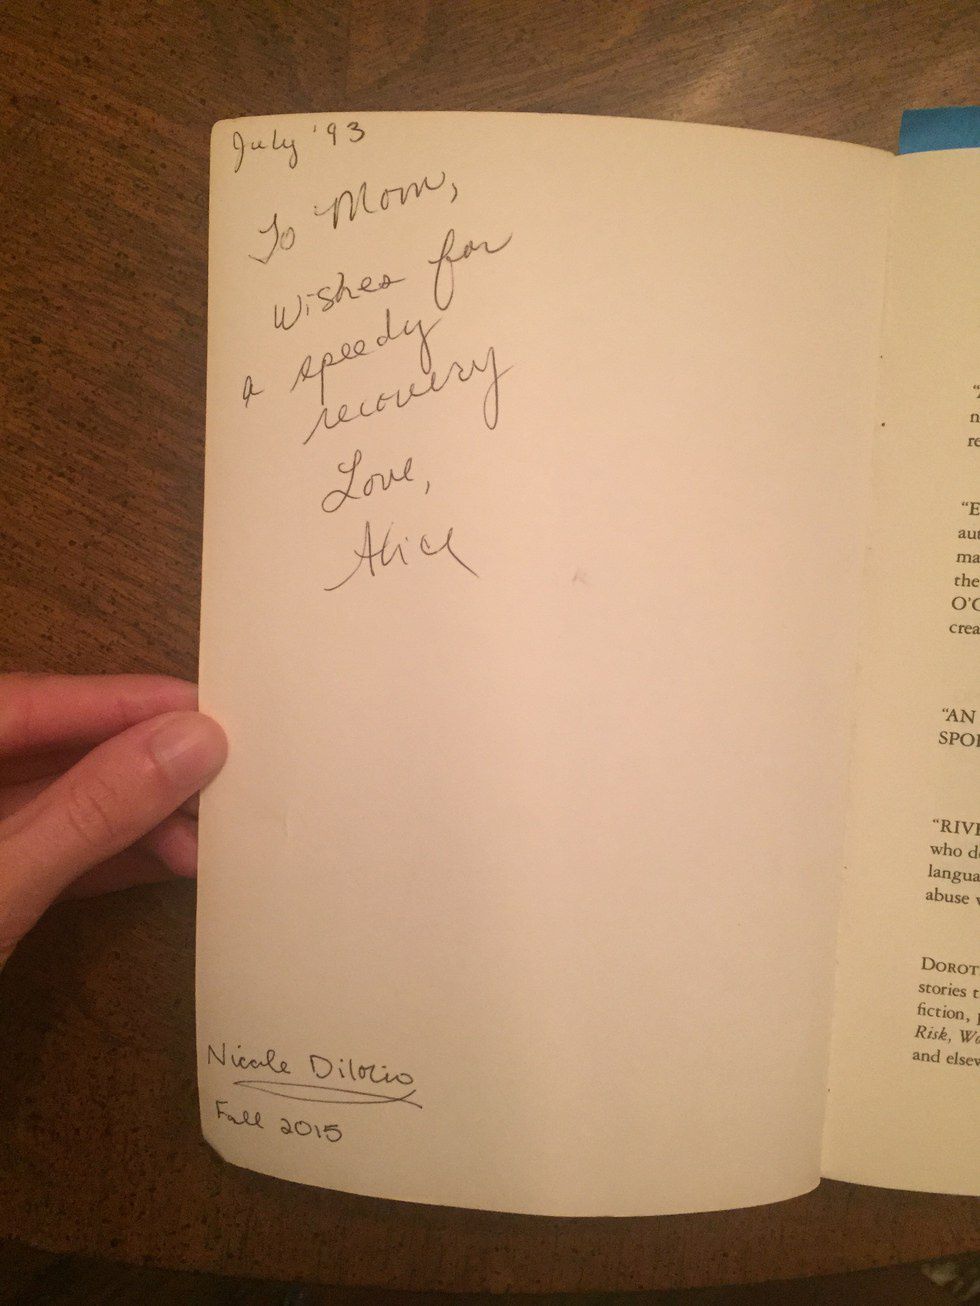 July '93
To Mom,
Wishes for
a speedy
recovery
Love,
Alice
Nicole DiIorio
Fall 2015
"E
aut
ma
the
O'C
crea
"AN
SPOI
"RIVE
who d
langua
abuse
DOROT
stories t
fiction,
Risk, Wo
and elsew